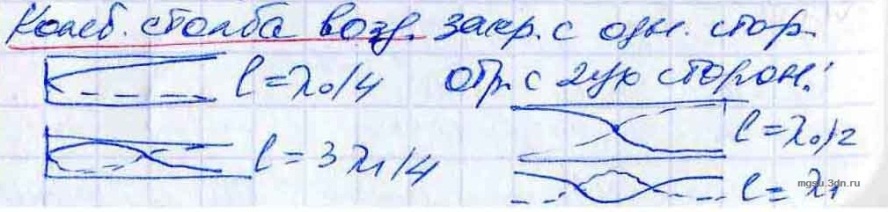 Колеб. столба возд. закр. с одн. стор.
l = λ₀/4 отр. с 2ух сторон:
l = λ₀/2
l = 3λ₁/4
l = λ₁
mgsu.3dn.ru